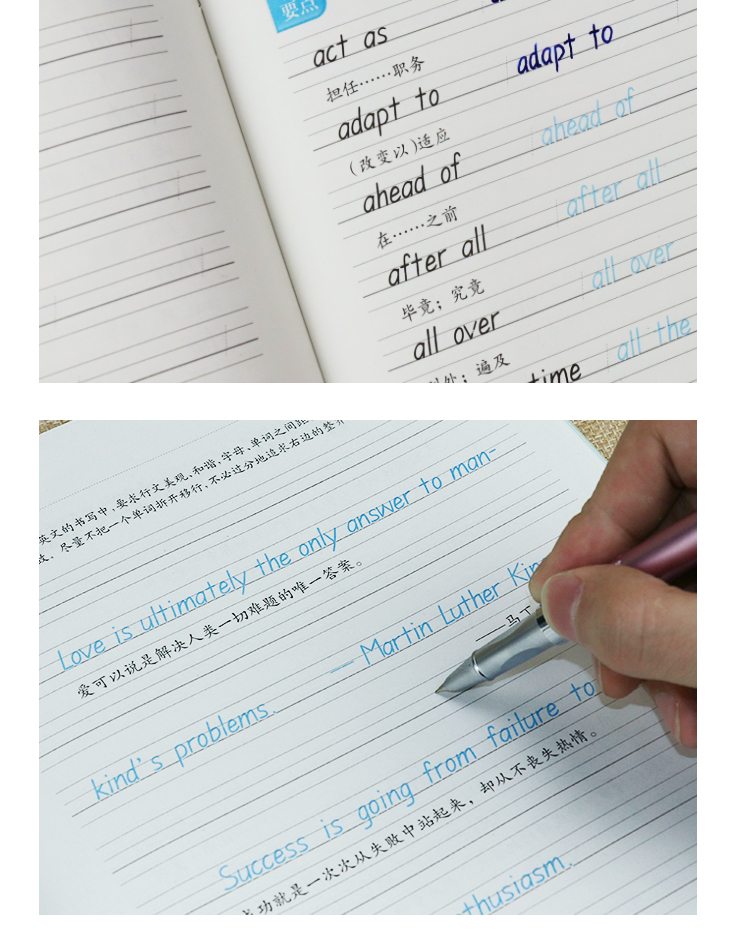 要点
act as
担任……职务
adapt to adapt to
(改变以)适应
ahead of ahead of
在……之前
after all after all
毕竟；究竟
all over all over
处；遍及
time all the
英文的书写中,要求行文美观、和谐,字母、单词之间距
尽量不把一个单词拆开移行,不必过分地追求右边的整齐
Love is ultimately the only answer to man-
爱可以说是解决人类一切难题的唯一答案。
kind's problems. — Martin Luther Kin
——马丁
Success is going from failure to
成功就是一次次从失败中站起来，却从不丧失热情。
thusiasm.